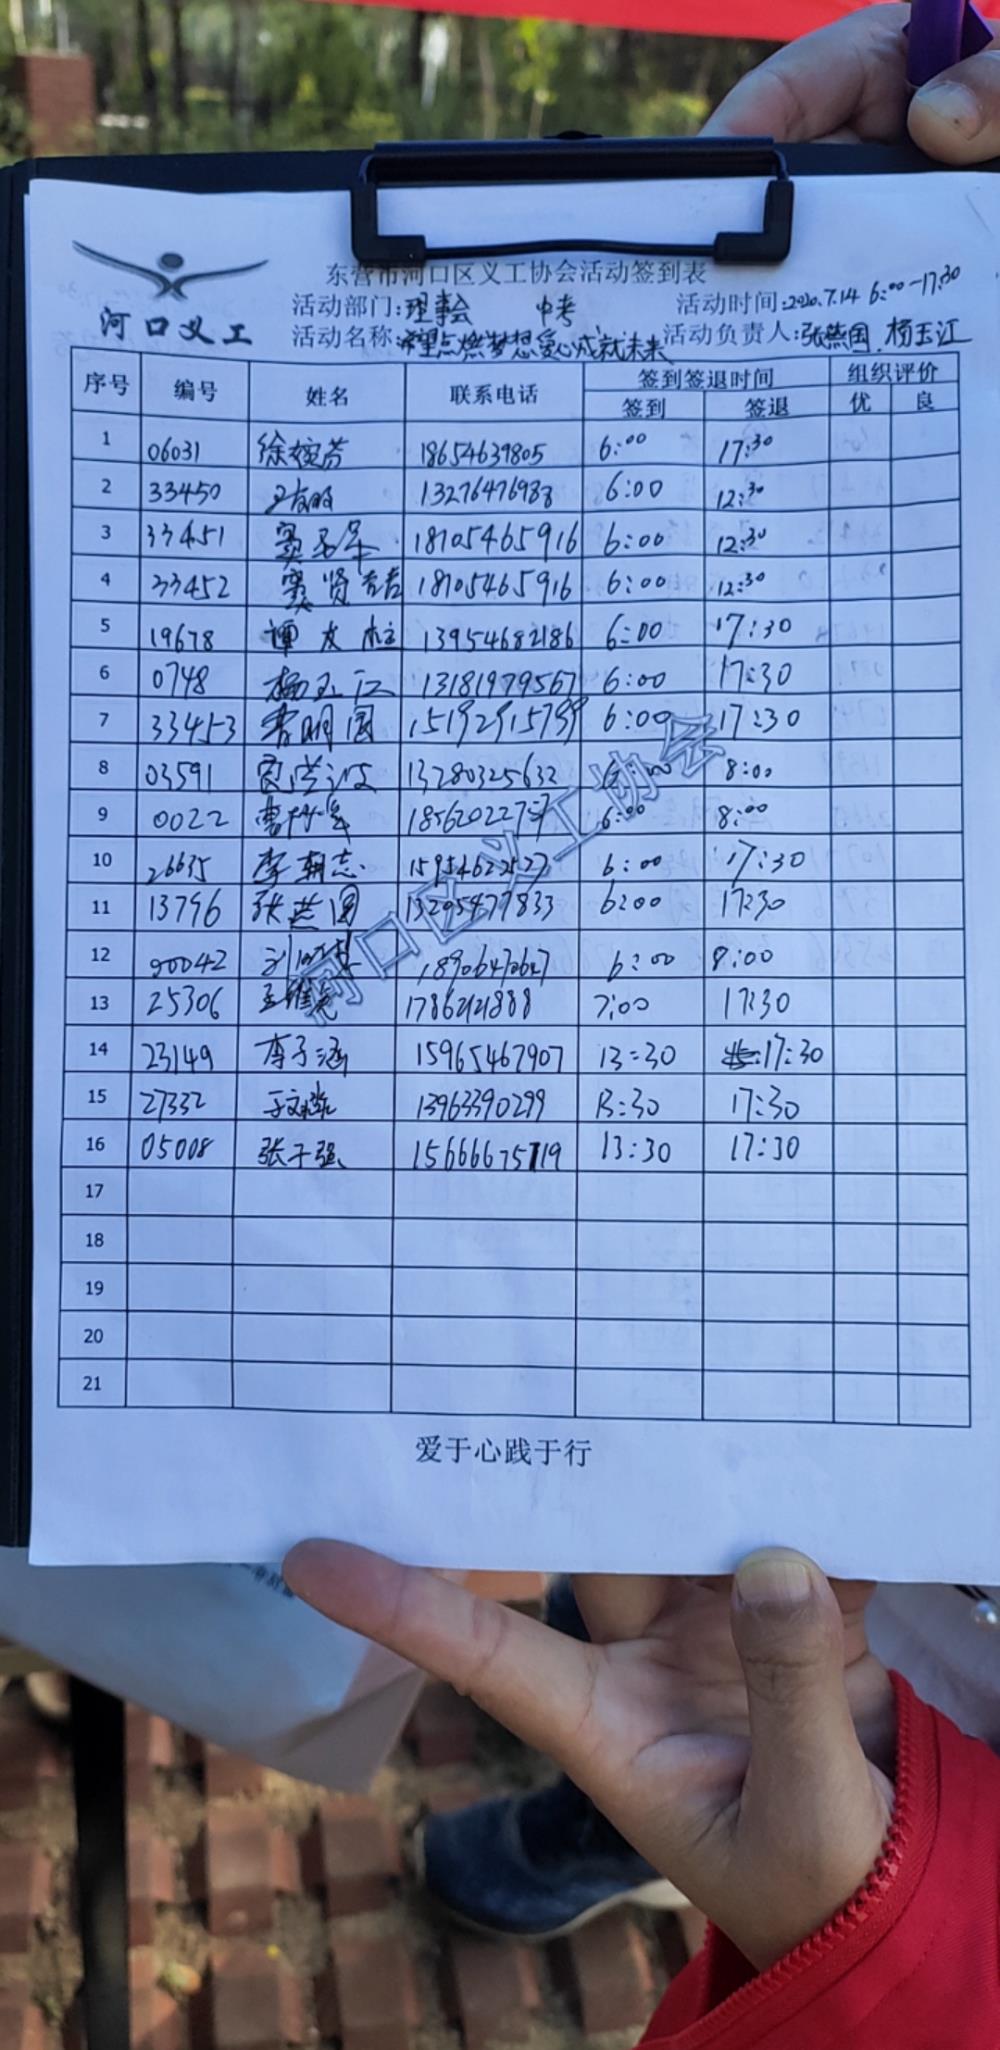 东营市河口区义工协会活动签到表
河口义工
活动部门:理事会 中考 活动时间:2020.7.14 6:00-17:30
活动名称:希望点燃梦想爱心成就未来 活动负责人:张燕国、杨玉江
序号 编号 姓名 联系电话 签到签退时间 组织评价
签到 签退 优 良
1 06031 18654639805 6:00 17:30
2 33450 6:00 12:30
3 33451 18105465916 6:00 12:30
4 33452 窦贤喆 18105465916 6:00 12:30
5 19678 谭友柱 13954682186 6:00 17:30
6 0748 杨玉江 13181979567 6:00 17:30
7 33453 6:00 17:30
8 03591 13280325632 8:00
9 0022 6:00 8:00
10 26635 李朝志 6:00 17:30
11 13796 张燕国 6:00 17:30
12 00042 6:00 8:00
13 25306 7:00 17:30
14 23149 李子涵 15965467907 13:30 17:30
15 27332 13963390299 13:30 17:30
16 05008 张子强 15666675719 13:30 17:30
17
18
19
20
21
河口区义工协会
爱于心践于行